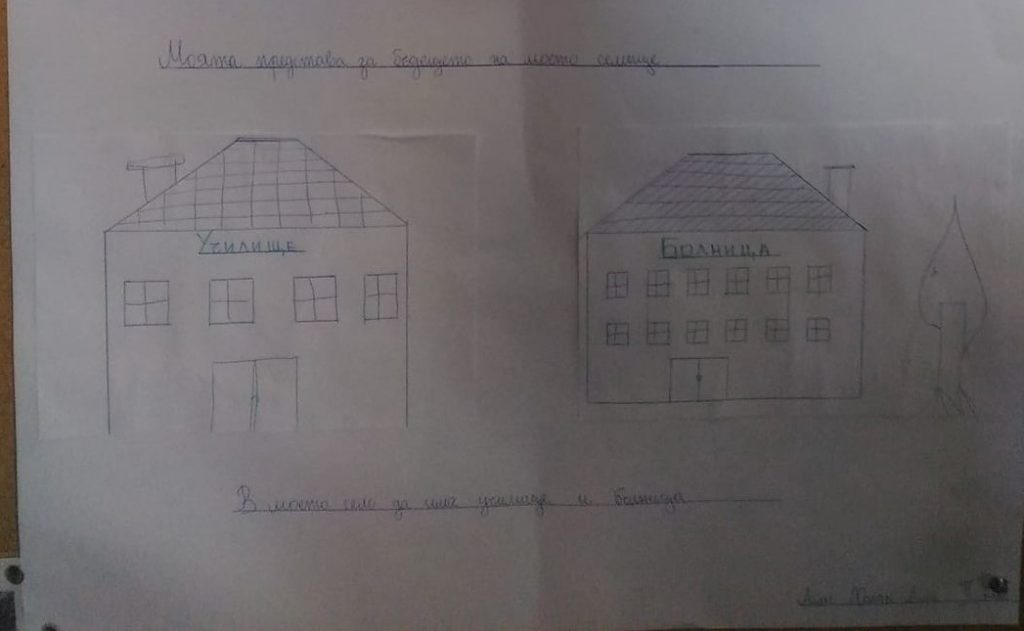 Моята представа за бъдещето на моето селище
Училище
Болница
В моето село да има училище и болница